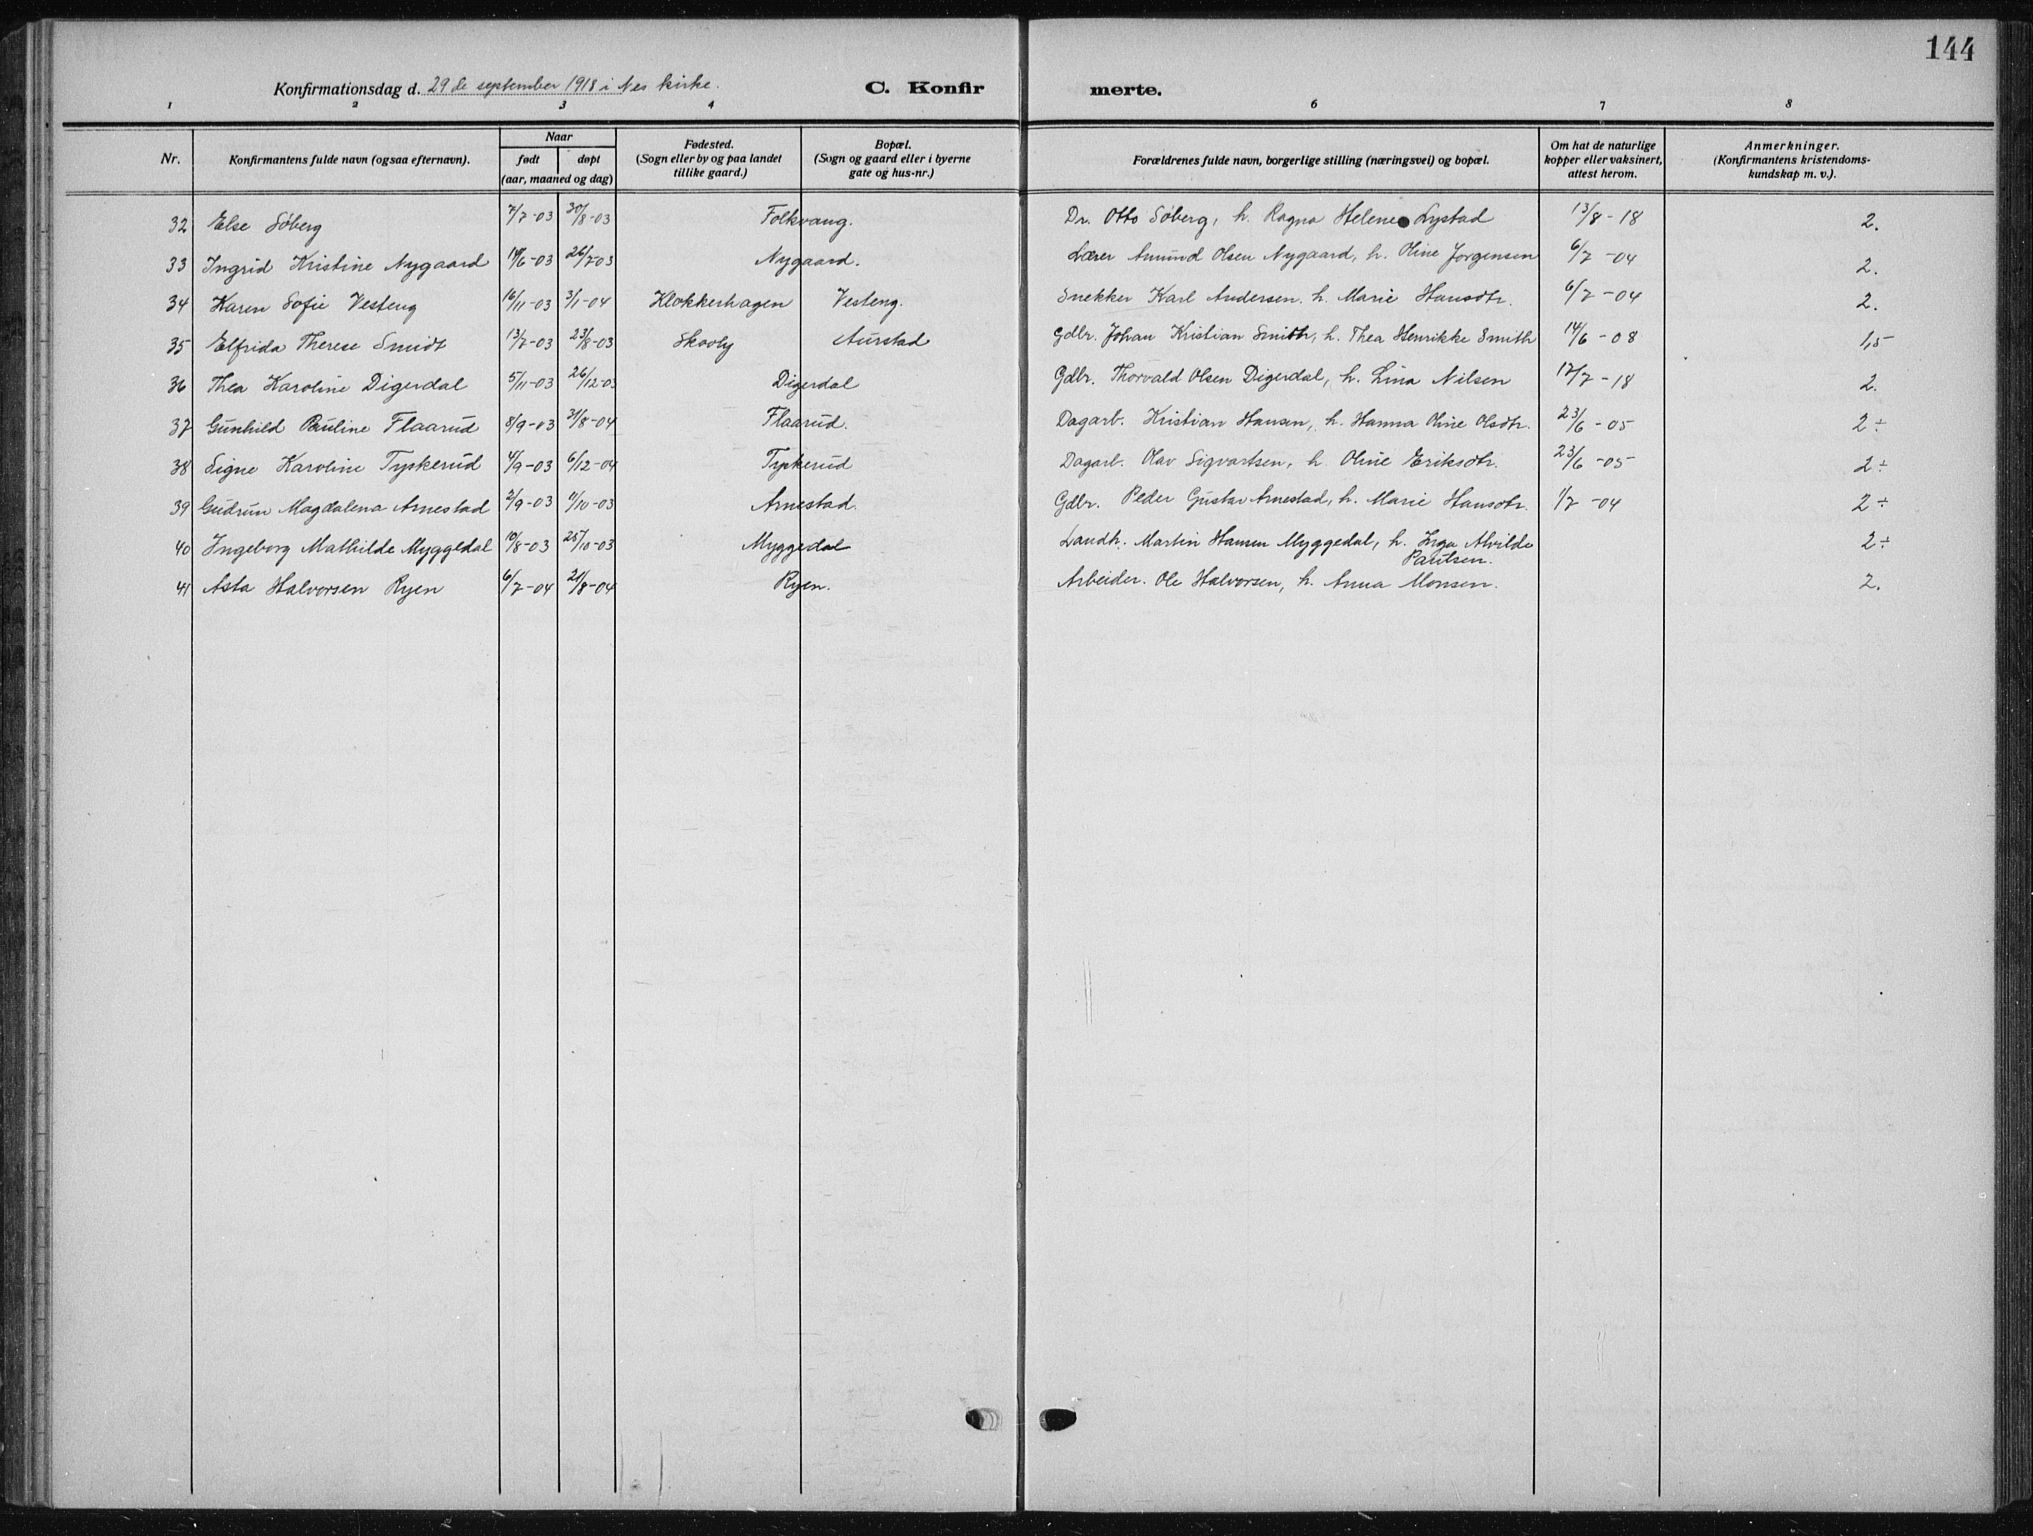 144
Konfirmationsdag d. 29de september 1918 i Nes kirke. C. Konfirmerte.
1 2 3 4 6 7 8
Nr. Konfirmantens fulde navn (ogsaa efternavn). Naar født døpt (aar, maaned og dag) Fødested. (Sogn eller by og paa landet tillike gaard.) Bopæl. (Sogn og gaard eller i byerne gate og hus-nr.) Forældrenes fulde navn, borgerlige stilling (næringsvei) og bopæl. Om hat de naturlige kopper eller vaksinert, attest herom. Anmerkninger. (Konfirmantens kristendoms-kundskap m. v.).
32 Else Søberg 7/7-03 30/8-03 Folkvang. Dr. Otto Søberg, h. Ragna Helene Lystad 13/8-18 2.
33 Ingrid Kristine Nygaard 18/6-03 26/7-03 Nygaard. Lærer Amund Olsen Nygaard, h. Oline Jørgensen 6/7-04 2.
34 Karen Sofie Vesteng 16/11-03 3/1-04 Klokkerhagen Vesteng. Snekker Karl Andersen. h. Marie Hansdtr. 6/7-04 2.
35 Elfrida Therese Smidt 13/7-03 23/8-03 Skovly Aurstad Gdbr. Johan Kristian Smith, h. Thea Henrikke Smith 14/6-08 1,5
36 Thea Karoline Digerdal 5/11-03 26/12-03 Digerdal Gdbr. Thorvald Olsen Digerdal, h. Lina Nilsen 17/7-18 2.
37 Gunhild Pauline Flaarud 8/9-03 31/8-04 Flaarud. Dagarb. Kristian Hansen, h. Hanna Oline Olsdtr. 23/6-05 2÷
38 Signe Karoline Tyskerud 4/9-03 6/12-04 Tyskerud Dagarb. Olav Sigvartsen, h. Oline Eriksdtr. 23/6-05 2÷
39 Gudrun Magdalena Arnestad 2/9-03 11/10-03 Arnestad. Gdbr. Peder Gustav Arnestad, h. Marie Hansdtr. 1/7-04 2÷
40 Ingeborg Mathilde Myggedal 10/8-03 25/10-03 Myggedal Landh. Martin Hansen Myggedal, h. Inga Alvilde
Paulsen. 2÷
41 Asta Halvorsen Ryen 6/7-04 21/8-04 Ryen. Arbeider. Ole Halvorsen, h. Anna Monsen. 2.